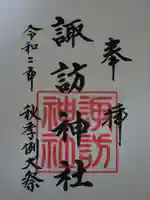 奉拝
諏訪神社
諏訪
神社
令和二年
秋季例大祭